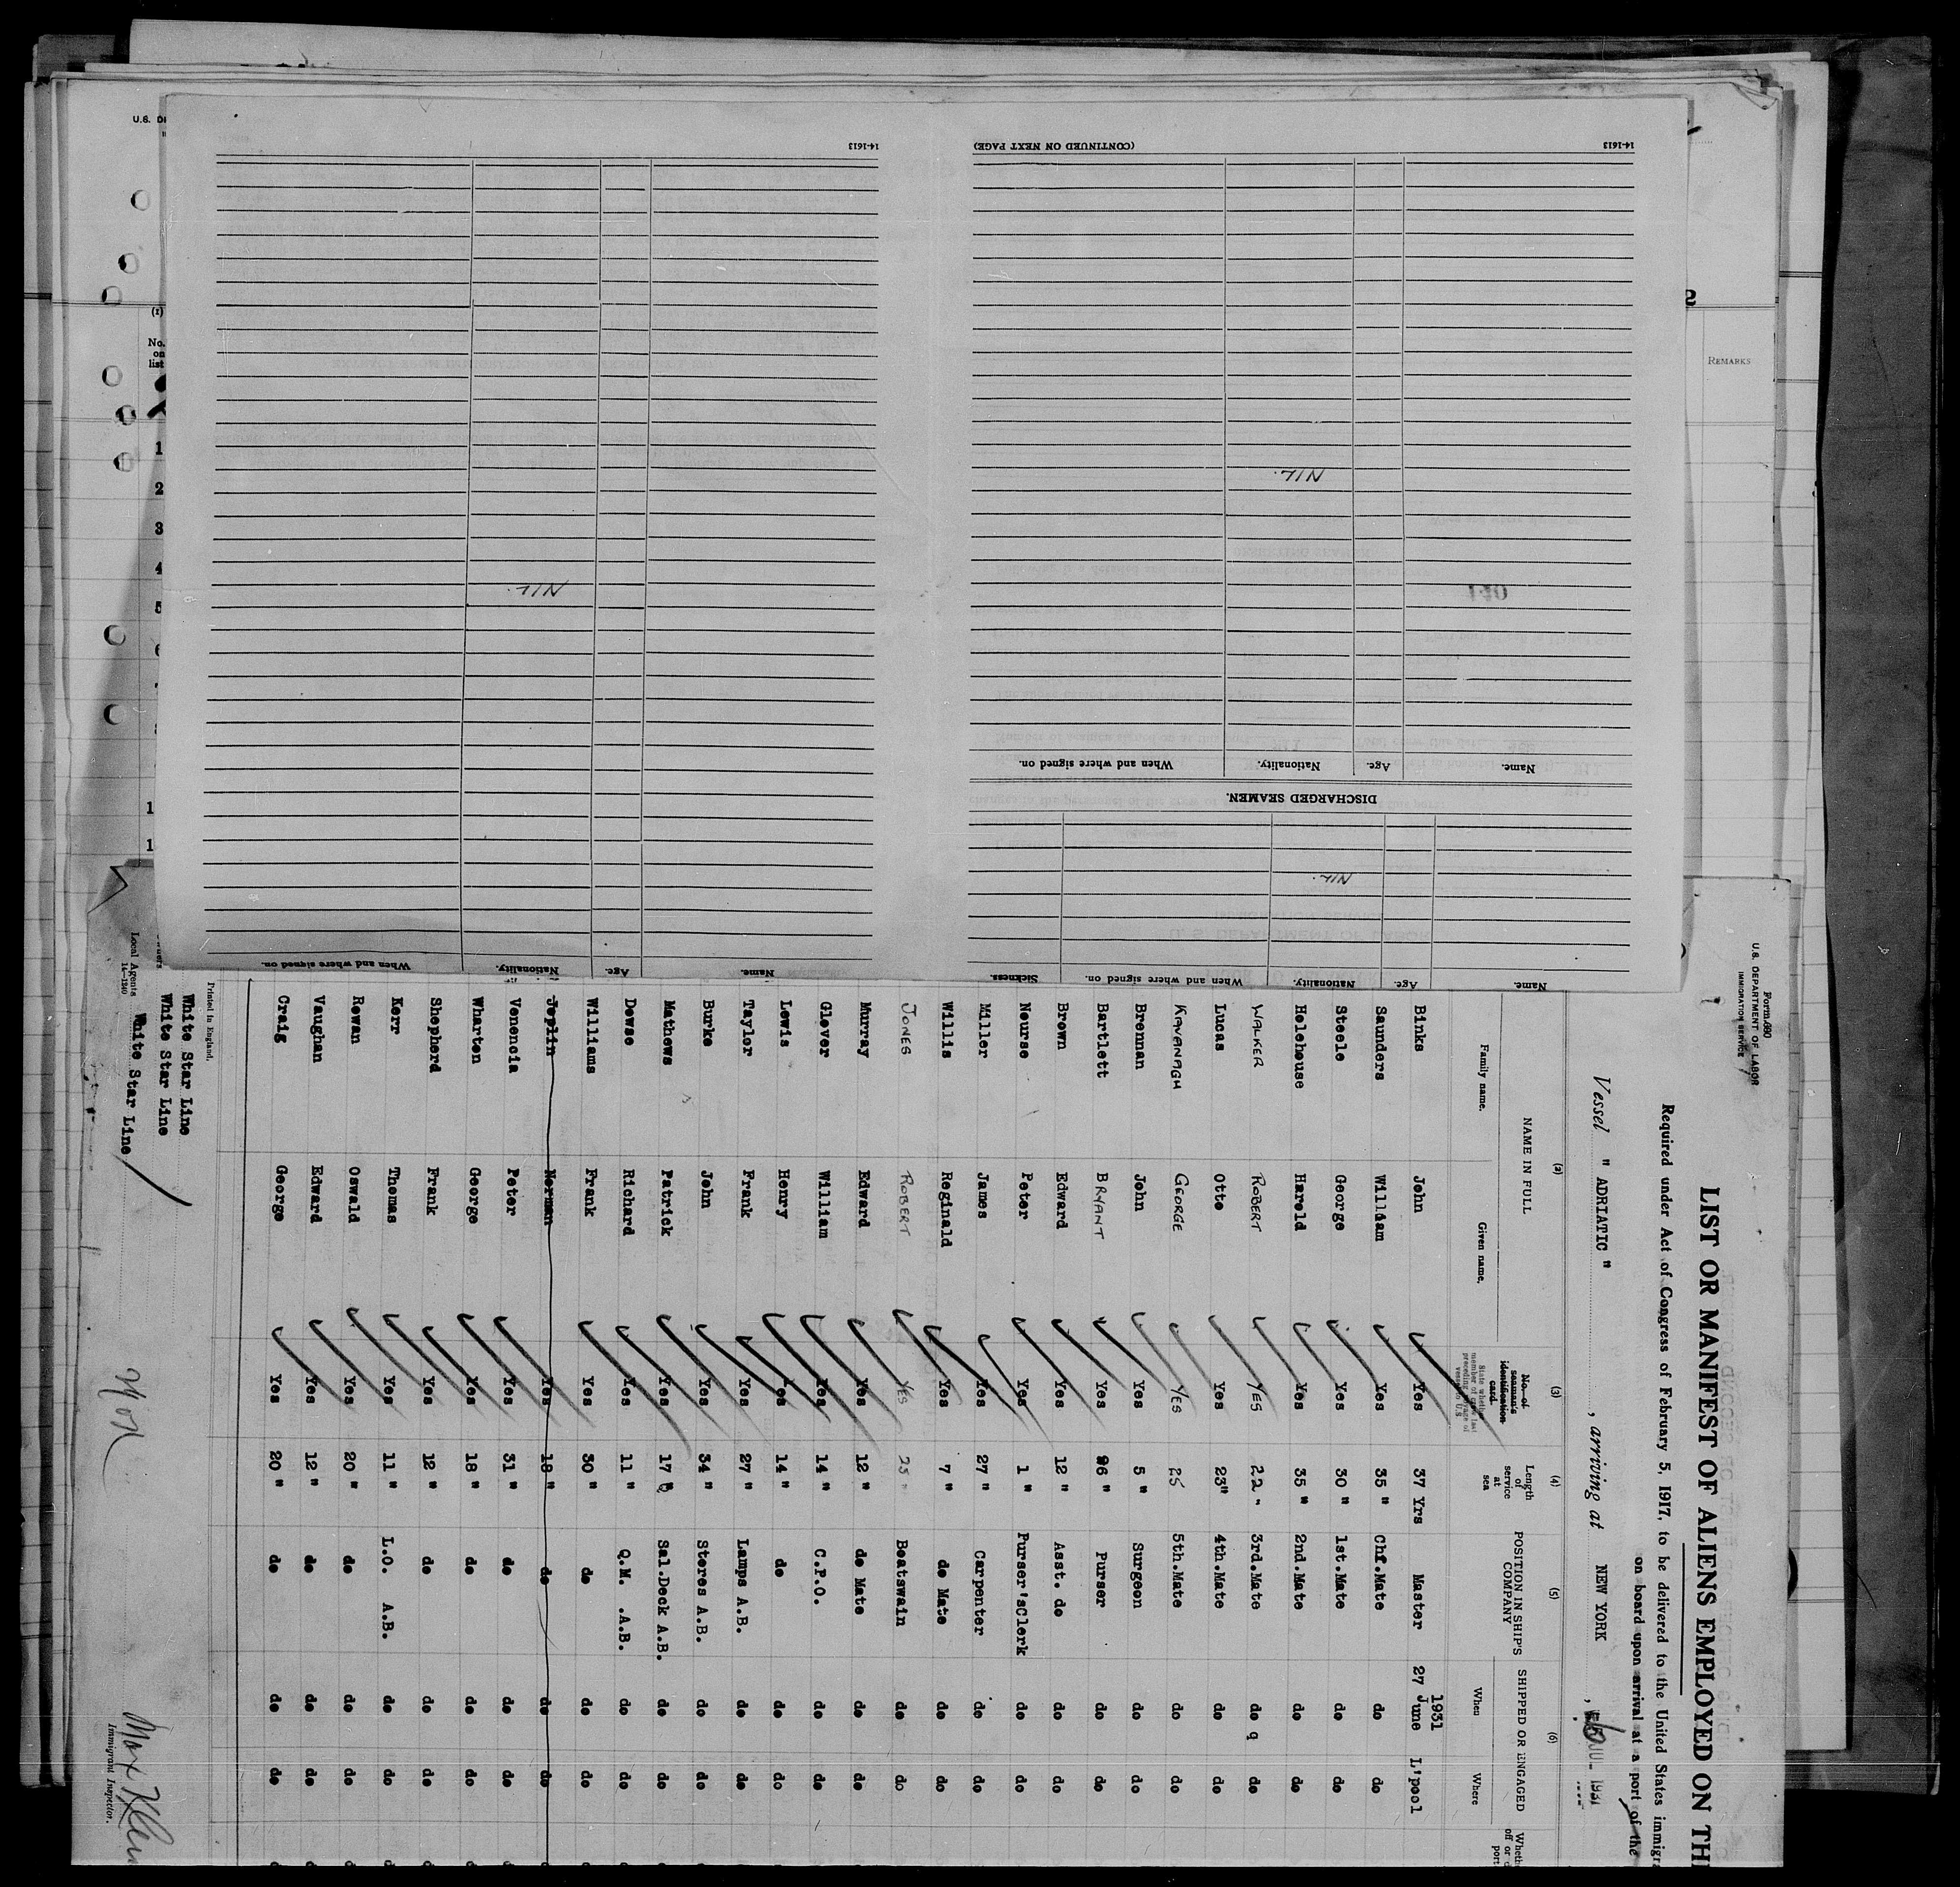 Form 680
U.S. DEPARTMENT OF LABOR
IMMIGRATION SERVICE
LIST OR MANIFEST OF ALIENS EMPLOYED ON TH
Required under Act of Congress of February 5, 1917, to be delivered to the United States immigra
on board upon arrival at a port of the
Vessel " ADRIATIC " , arriving at NEW YORK , JUL 1931
(2) (3) (4) (5) (6)
NAME IN FULL No. of seaman's identification card Length of service at sea POSITION IN SHIP'S COMPANY SHIPPED OR ENGAGED
Family name. Given name. State whether member of crew last preceding voyage of vessel to U.S. When Where
1931
Binks John Yes 37 Yrs Master 27 June L'pool
Saunders William Yes 35 " Chf.Mate do do
Steele George Yes 30 " 1st.Mate do do
Holehouse Harold Yes 35 " 2nd.Mate do do
WALKER ROBERT YES 22 " 3rd.Mate do q do
Lucas Otto Yes 23" 4th.Mate do do
KAVANAGH GEORGE YES 25 5th.Mate do do
Brennan John Yes 5 " Surgeon do do
Bartlett BRYANT Yes 26 " Purser do do
Brown Edward Yes 12 " Asst. do do do
Nourse Peter Yes 1 " Purser'sClerk do do
Miller James Yes 27 " Carpenter do do
Willis Reginald Yes 7 " do Mate do do
JONES ROBERT YES 25 " Boatswain do do
Murray Edward Yes 12 " do Mate do do
Glover William Yes 14 " C.P.O. do do
Lewis Henry Yes 14 " do do do
Taylor Frank Yes 27 " Lamps A.B. do do
Burke John Yes 34 " Stores A.B. do do
Mathews Patrick Yes 17 " Sal.Deck A.B. do do
Dowse Richard Yes 11 " Q.M. .A.B. do do
Williams Frank Yes 30 " do do do
Joplin Norman Yes 18 " do do do
Venencia Peter Yes 31 " do do do
Wharton George Yes 18 " do do do
Shepherd Frank Yes 12 " do do do
Kerr Thomas Yes 11 " L.O. A.B. do do
Rowan Oswald Yes 20 " do do do
Vaughan Edward Yes 12 " do do do
Craig George Yes 20 " do do do
Printed in England.
White Star Line
White Star Line
Local Agents White Star Line
14-1240
Immigrant Inspector.
Name. Age. Nationality. When and where signed on. Sickness.
NIL.
DISCHARGED SEAMEN.
Name. Age. Nationality. When and where signed on.
NIL.
14-1613 (CONTINUED ON NEXT PAGE)
Name. Age. Nationality. When and where signed on.
NIL.
14-1613
U.S. DE
(1)
No. on list
1
2
3
4
5
6
REMARKS